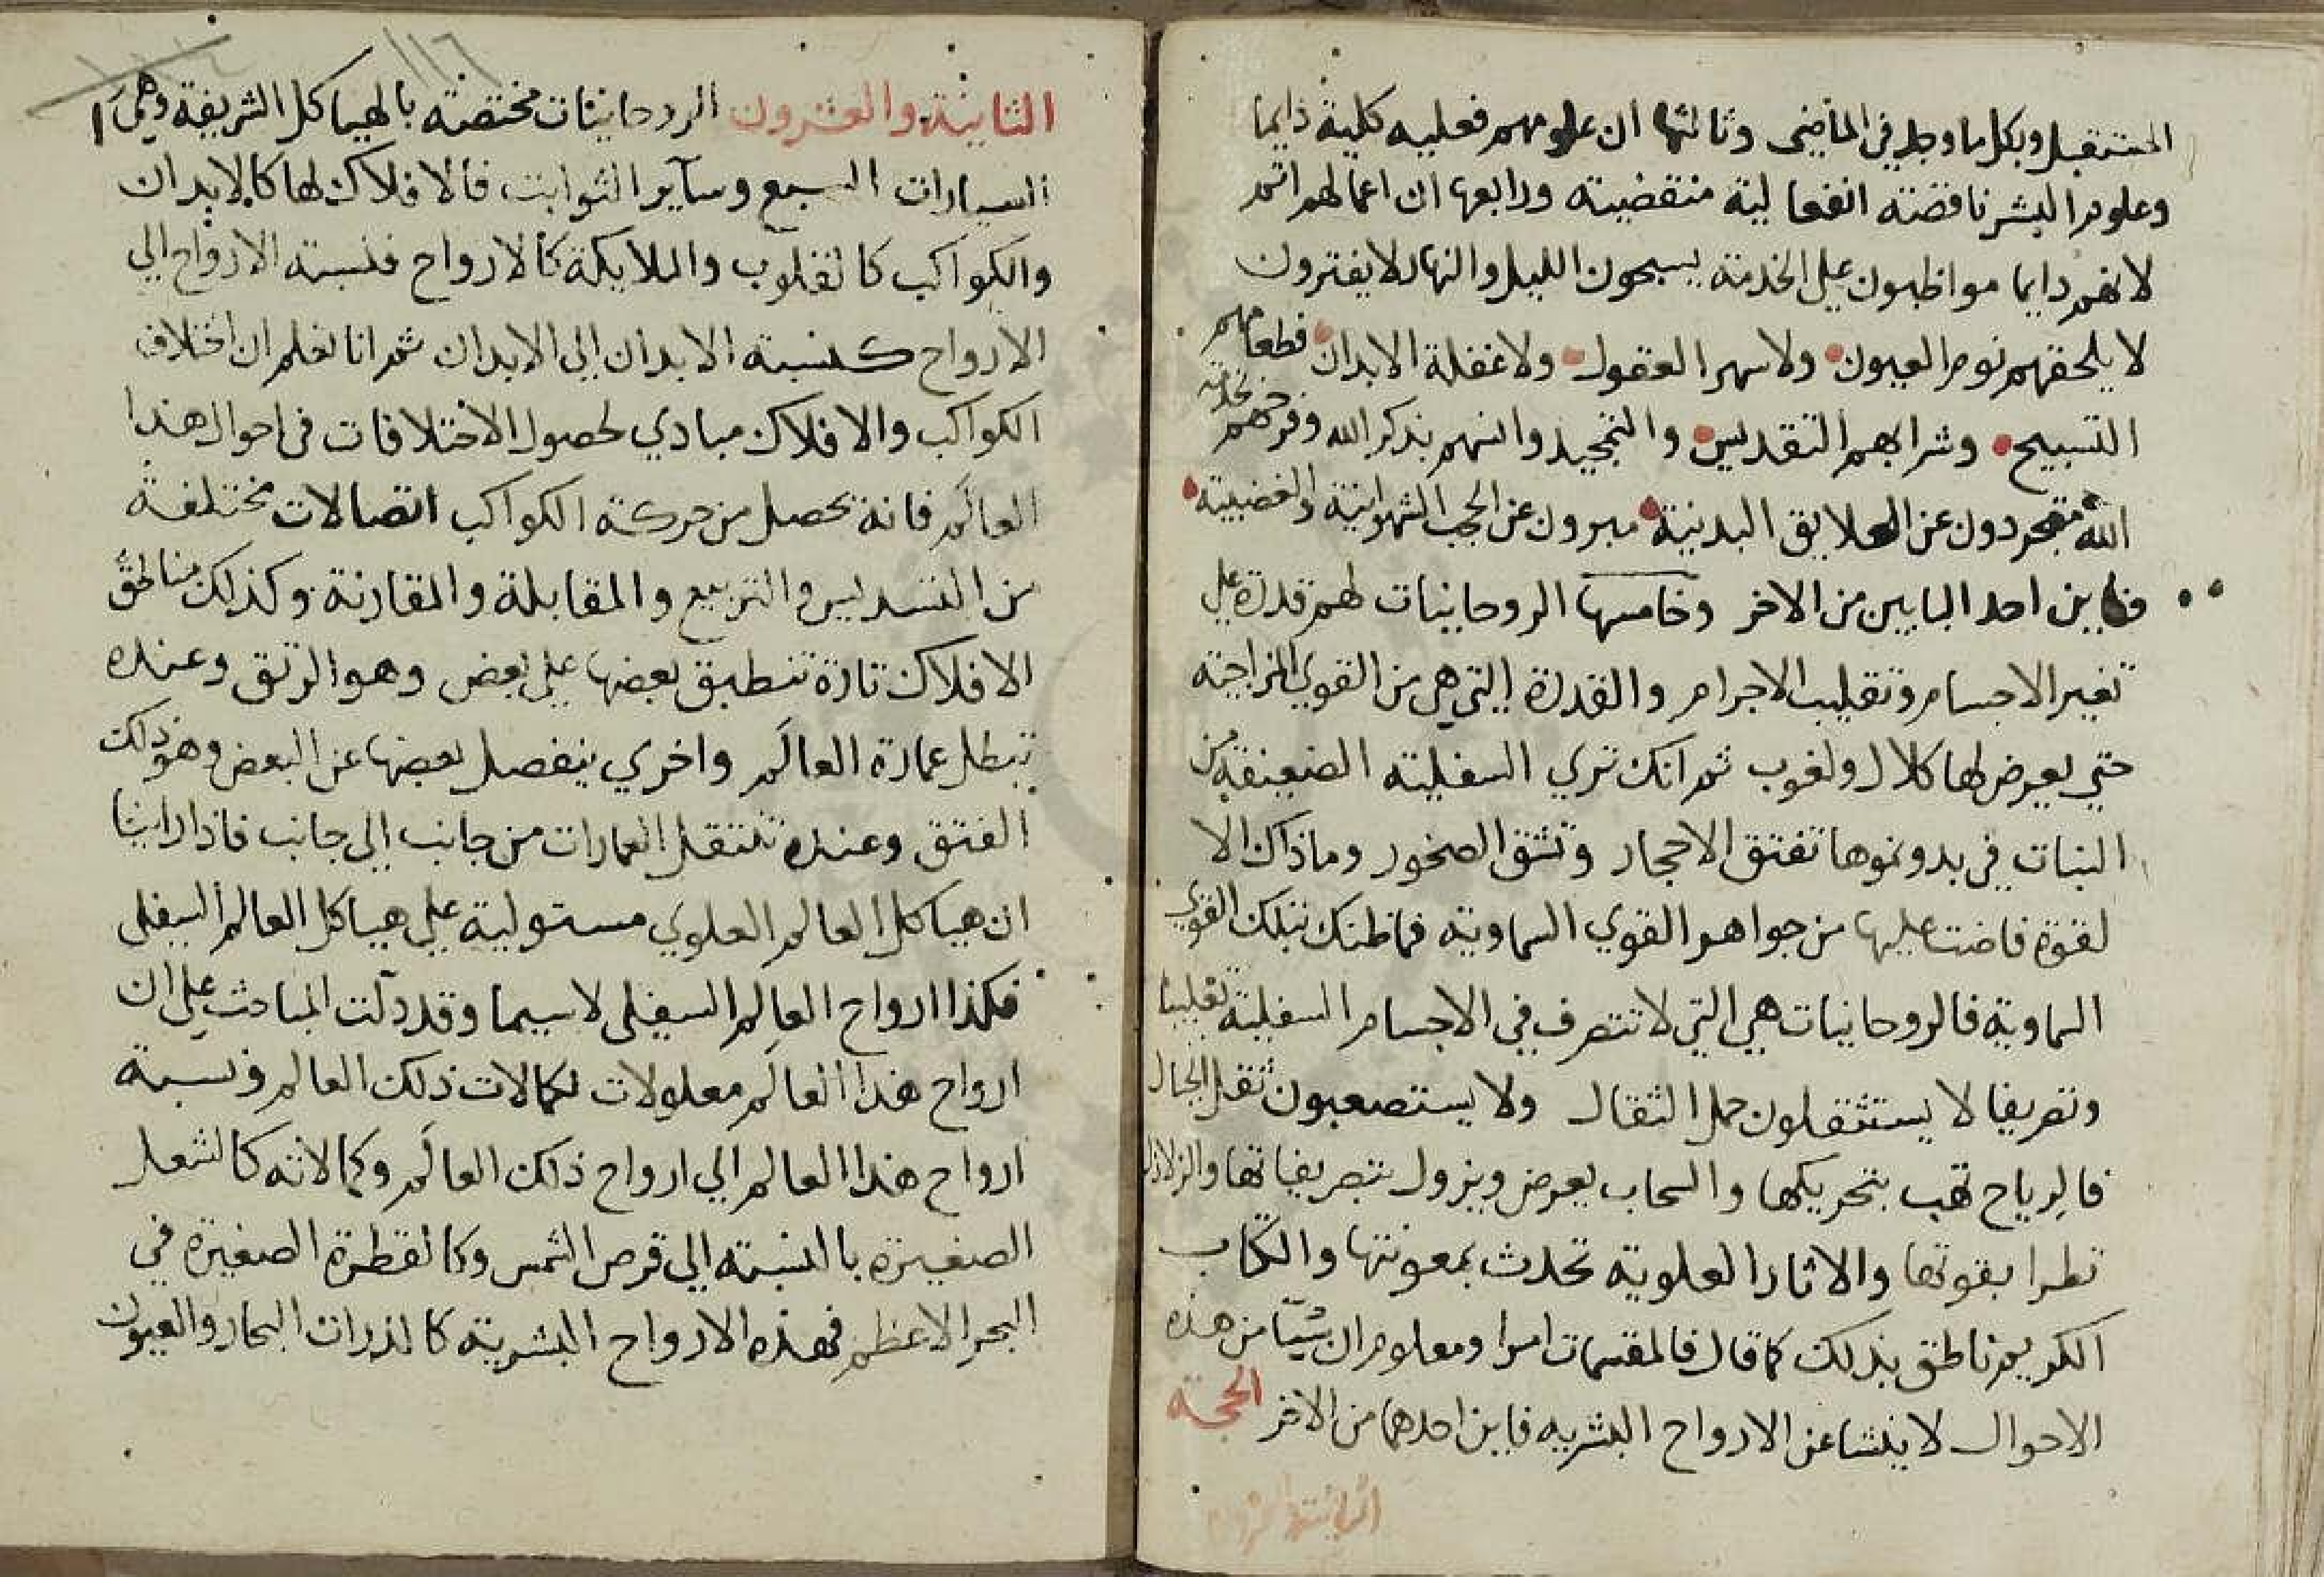 المستقبل وبكل ما وجد في الماضي وثالثها ان علومهم فعليه كلية دايما
وعلوم البشر ناقصة انفعالية منقضية ورابعها ان اعمالهم اتم
لانهم دايما مواظبون علي الخدمة يسبحون الليل والنهار لا يفترون
لا يلحقهم نوم العيون ولا سهر العقول ولا غفلة الابدان فطعامهم
التسبيح وشرابهم التقديس والتمجيد وانسهم بذكر الله وفرحهم بخدمة
الله متجردون عن العلايق البدنية مبرون عن الحجب الشهوانية والغضبية
فاين احد البابين من الاخر وخامسها الروحانيات لهم قدرة علي
تغير الاجسام وتقليب الاجرام والقدرة التي هي من القوي المزاجية
حتي يعرض لها كلال ولغوب ثم انك تري السفلية الضعيفة من
النبات في بدو نموها تفتق الاحجار وتشق الصخور وما ذاك الا
لقوة فاضت عليها من جواهر القوي السماوية فما ظنك بتلك القوي
السماوية فالروحانيات هي التي لا تتصرف في الاجسام السفلية تقليبا
وتصريفا لا يستثقلون حمل الثقال ولا يستصعبون ثقل الجبال
فالرياح تهب بتحريكها والسحاب يعرض ويزول بتصريفاتها والزلازل
تطرا بقوتها والاثار العلوية تحدث بمعونتها والكتاب
الكريم ناطق بذلك كما قال فالمقسمات امرا ومعلوم ان شيئا من هذه
الاحوال لا ينشا عن الارواح البشريه فاين احدهما من الاخر الحجة
١١٦
الثانية والعشرون الروحانيات مختصة بالهياكل الشريفة وهي
السيارات السبع وساير الثوابت فالافلاك لها كالابدان
والكواكب كالقلوب والملايكة كالارواح فنسبة الارواح الي
الارواح كنسبة الابدان الي الابدان ثم انا نعلم ان اختلاف
الكواكب والافلاك مبادي لحصول الاختلافات في احوال هذا
العالم فانه تحصل من حركة الكواكب اتصالات مختلفة
من التسديس والتربيع والمقابلة والمقارنة وكذلك مناطق
الافلاك تارة تنطبق بعضها علي بعض وهو الرتق وعنده
تبطل عمارة العالم واخري ينفصل بعضها عن البعض وهو ذلك
الفتق وعنده تنتقل العمارات من جانب الي جانب فاذا راينا
ان هياكل العالم العلوي مستولية علي هياكل العالم السفلي
فكذا ارواح العالم السفلي لا سيما وقد دلت المباحث علي ان
ارواح هذا العالم معلولات لكمالات ذلك العالم ونسبة
ارواح هذا العالم الي ارواح ذلك العالم وكمالاته كالشعل
الصغيرة باالنسبة الي قرص الشمس وكالقطرة الصغيرة في
البحر الاعظم فهذه الارواح البشرية كالذرات البحار والعيون